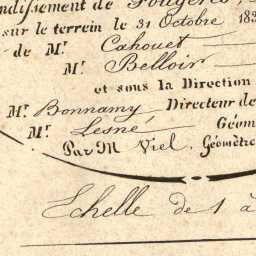 ndissement de Fougères,
sur le terrein le 31 Octobre 183
de Mr. Cahouet
Mr. Belloir
et sous la Direction
Mr. Bonnamy Directeur de
Mr. Lesné Géom
Par M Viel. Géomètre
Echelle de 1 à